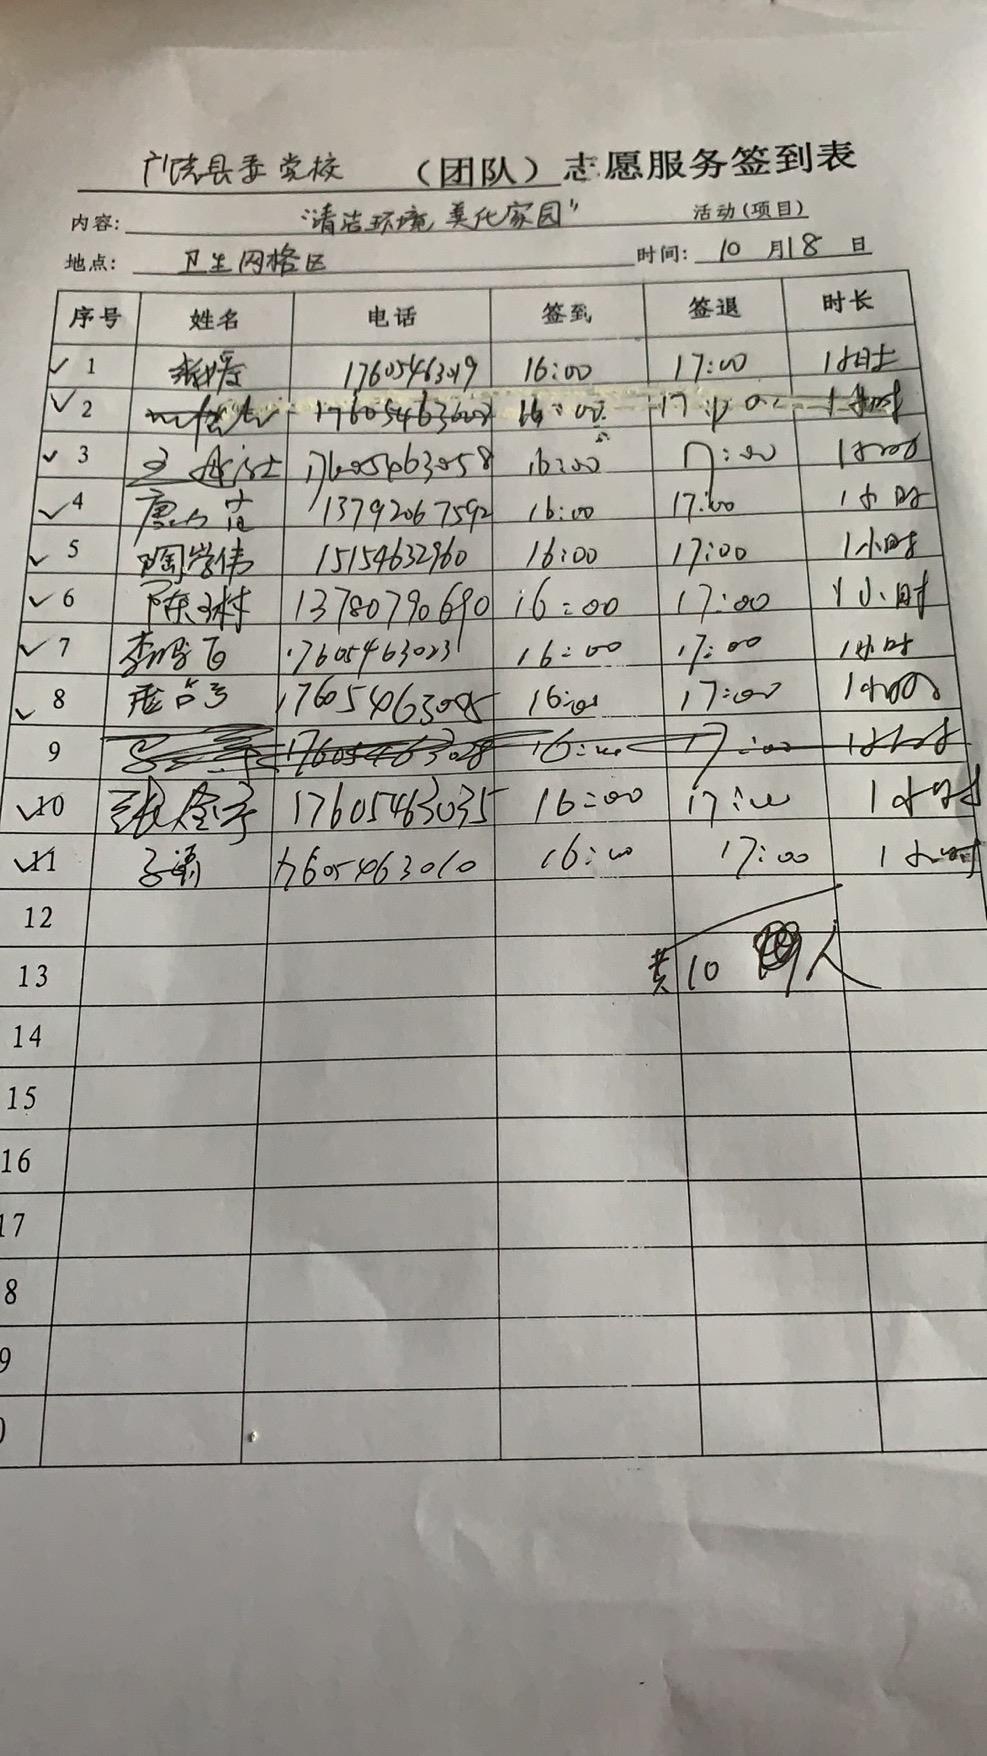 广饶县委党校 （团队）志愿服务签到表
内容: "清洁环境,美化家园" 活动(项目)
地点: 卫生网格区 时间: 10 月 18 日
序号 姓名 电话 签到 签退 时长
✓ 1 17605463019 16:00 17:00 1小时
✓ 2 16:00 1小时
✓ 3 17605463058 16:00 17:00 1小时
✓ 4 13792067592 16:00 17:00 1小时
✓ 5 陶学伟 15154632960 16:00 17:00 1小时
✓ 6 陈琳 13780790690 16:00 17:00 1小时
✓ 7 17605463023 16:00 17:00 1小时
✓ 8 16:00 17:00 1小时
9 17605463028 16:00 17:00 1小时
✓ 10 张金亭 17605463035 16:00 17:00 1小时
✓ 11 17605463010 16:00 17:00 1小时
12
13 共10 人
14
15
16
17
8
9